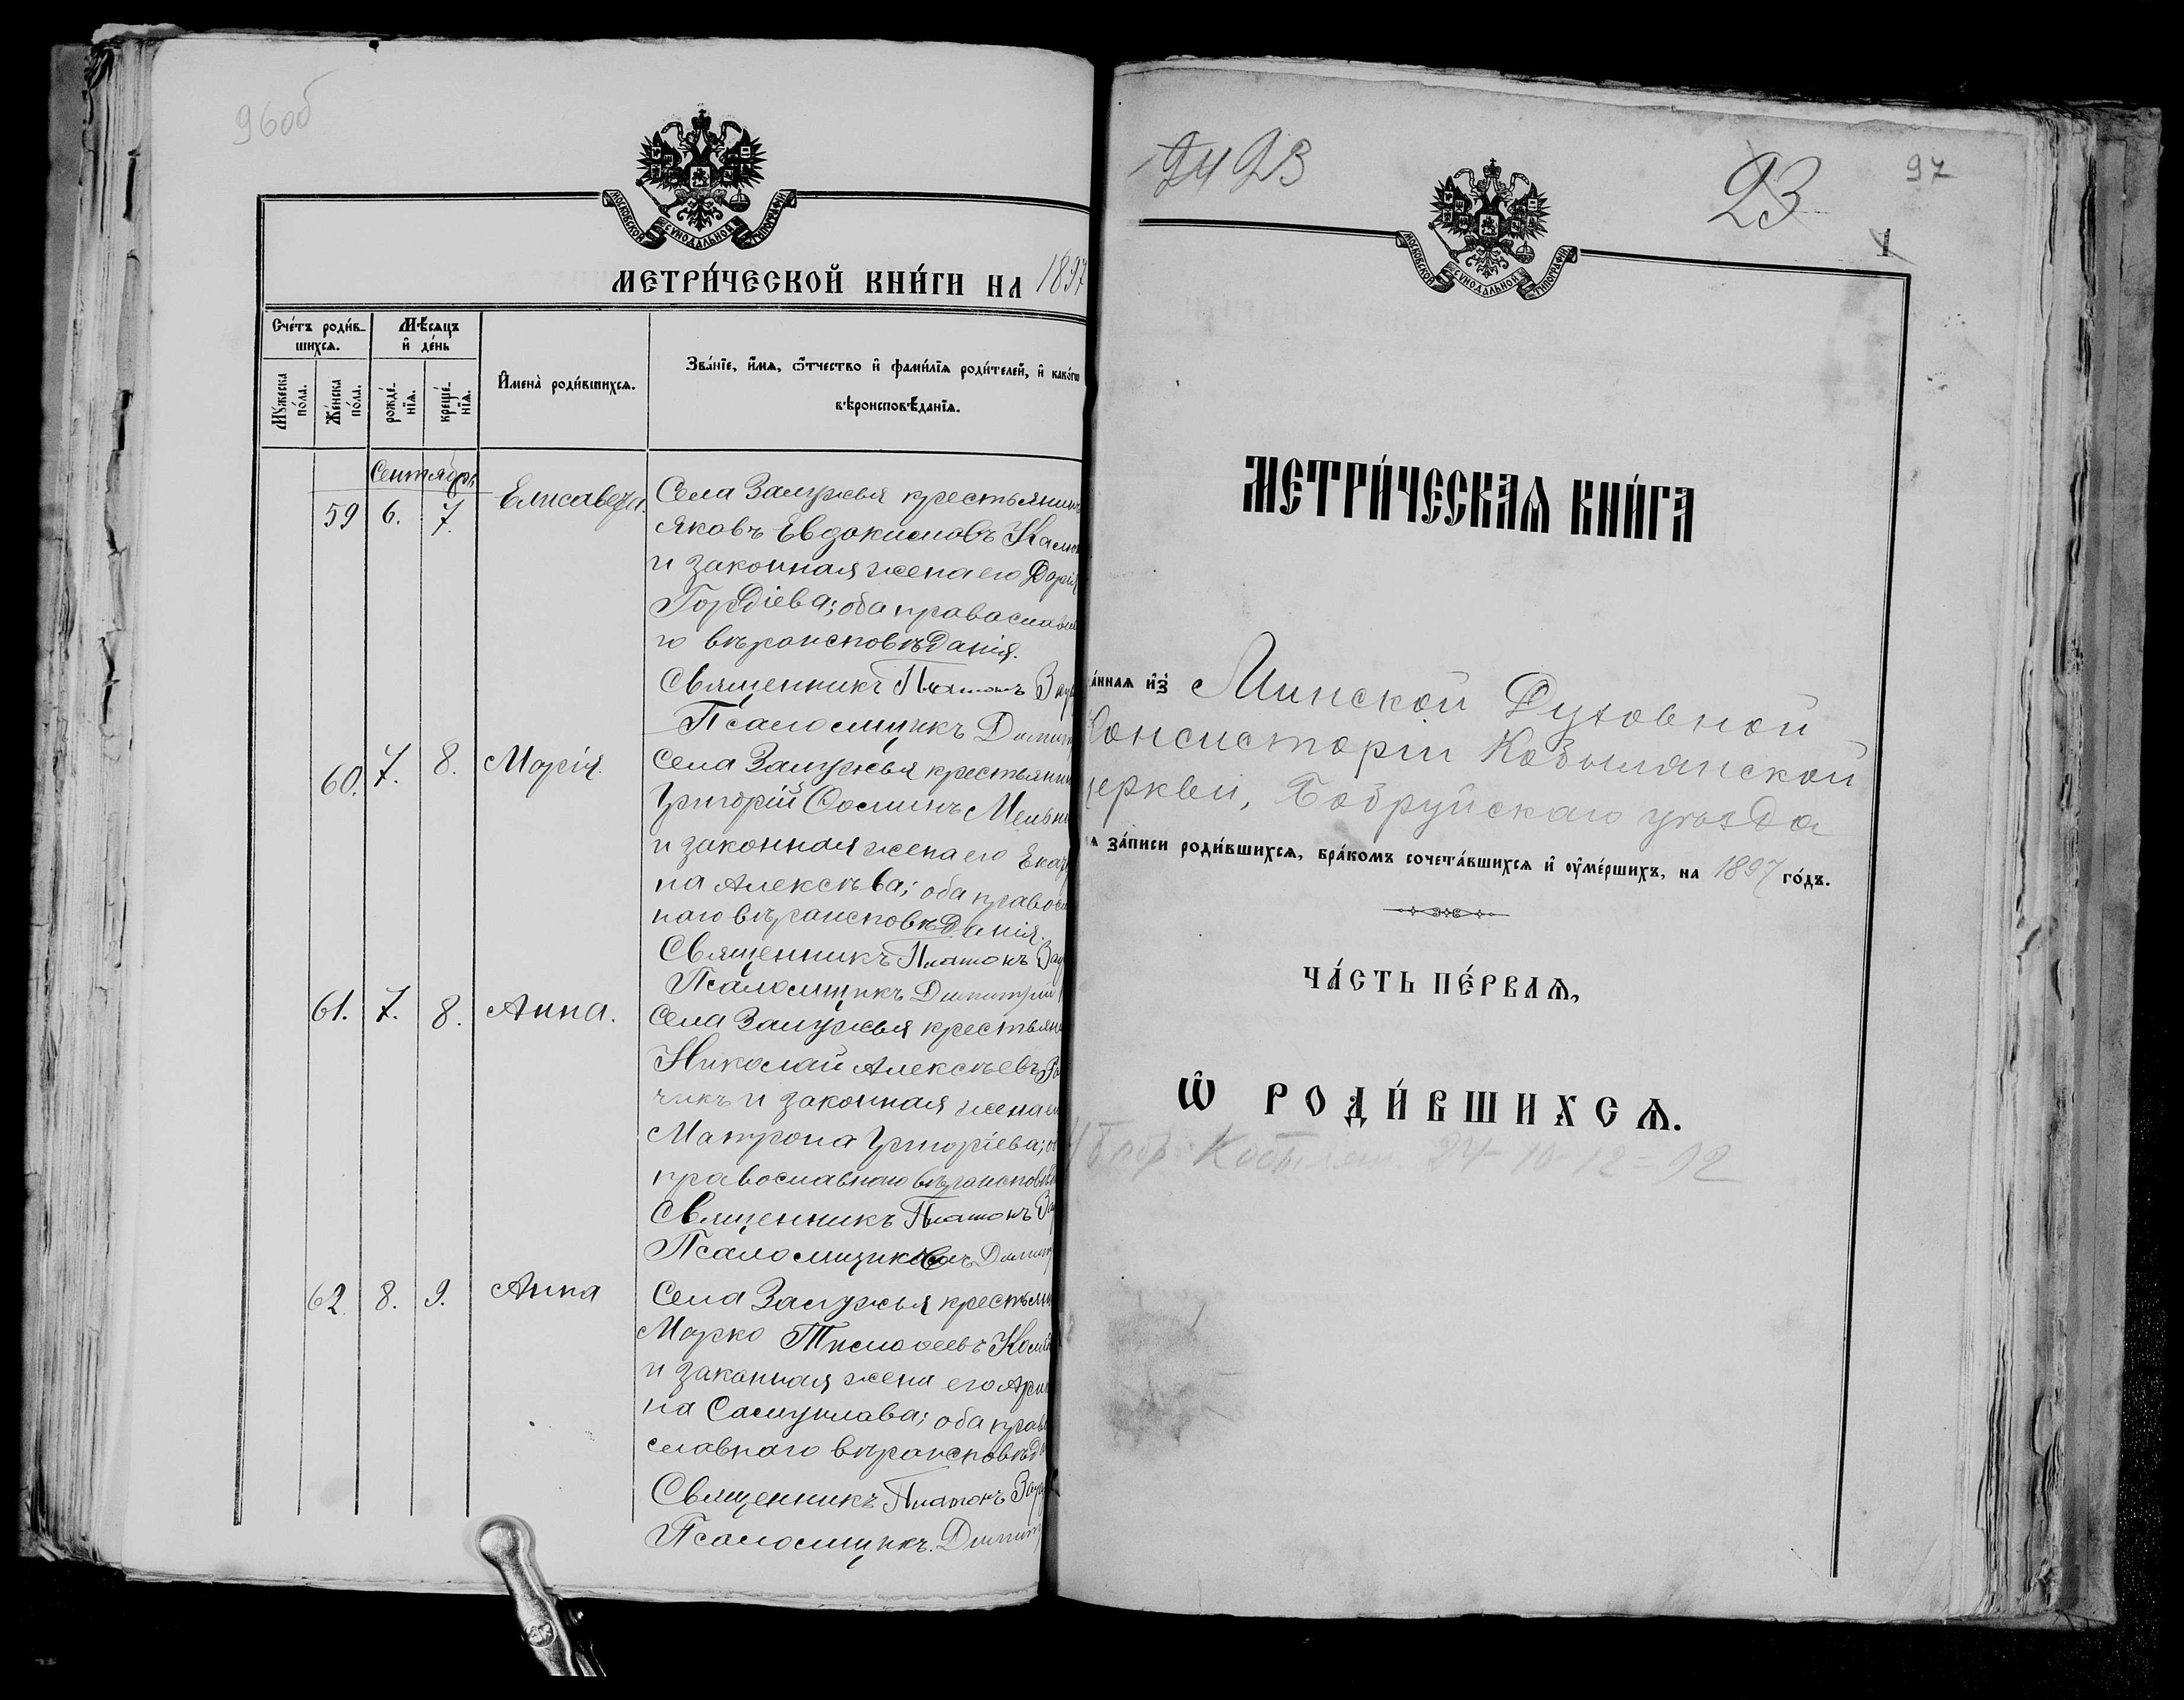 96об
МОСКОВСКОЙ СѴНОДАЛЬНОЙ ТИПОГРАФІИ
МЕТРИ́ЧЕСКОЙ КНИ́ГИ НА 1897
Сче́тъ роди́в-
шихсѧ.
Мѣ́сѧцъ
и҆ де́нь
Мꙋжеска
по́ла.
Же́нска
по́ла.
рожде́-
нїѧ.
креще́-
нїѧ.
И҆мена̀ роди́вшихсѧ.
Зва́нїе, и҆́мѧ, ѻ҆́тчество и҆ фами́лїѧ роди́телей, и҆ како́гѡ
вѣроисповѣ́данїѧ.
Сентябрь
59 6. 7. Елисавета.
Села Залужья крестьянинъ
Яковъ Евдокимовъ
и законная жена его Дарія
Гордіева; оба православна
го вѣроисповѣданія.
Священникъ Платонъ
Псаломщикъ Димитр
60. 7. 8. Марія.
Села Залужья крестьянин
Григорій Ѳоминъ Мельни
и законная жена его Екате
на Алексѣева; оба правосл
наго вѣроисповѣданія.
Священникъ Платонъ
Псаломщикъ Димитрій
61. 7. 8. Анна.
Села Залужья крестьяни
Николай Алексѣевъ
чикъ и законная жена ег
Матрона Григоріева; об
православнаго вѣроисповѣд
Священникъ Платонъ
Псаломщикъ Димит
62. 8. 9. Анна
Села Залужья крестьян
Марко Тимоѳеевъ
и законная жена его Ари
на Самуилова; оба право
славнаго вѣроисповѣд
Священникъ Платонъ
Псаломщикъ. Димит
24 23
23
97
1
МОСКОВСКОЙ СѴНОДАЛЬНОЙ ТИПОГРАФІИ
МЕТРИ́ЧЕСКАѦ КНИ́ГА
а́ннаѧ и҆з̾ Минской Духовной
Консисторіи Кобылянской
церкви, Бобруйскаго уѣзда
ѧ за́писи роди́вшихсѧ, бра́комъ сочета́вшихсѧ и҆ ᲂу҆ме́ршихъ, на 1897 го́дъ.
ЧА́СТЬ ПЕ́РВАѦ,
Ѽ РОДИ́ВШИХСѦ.
24-10-12=92